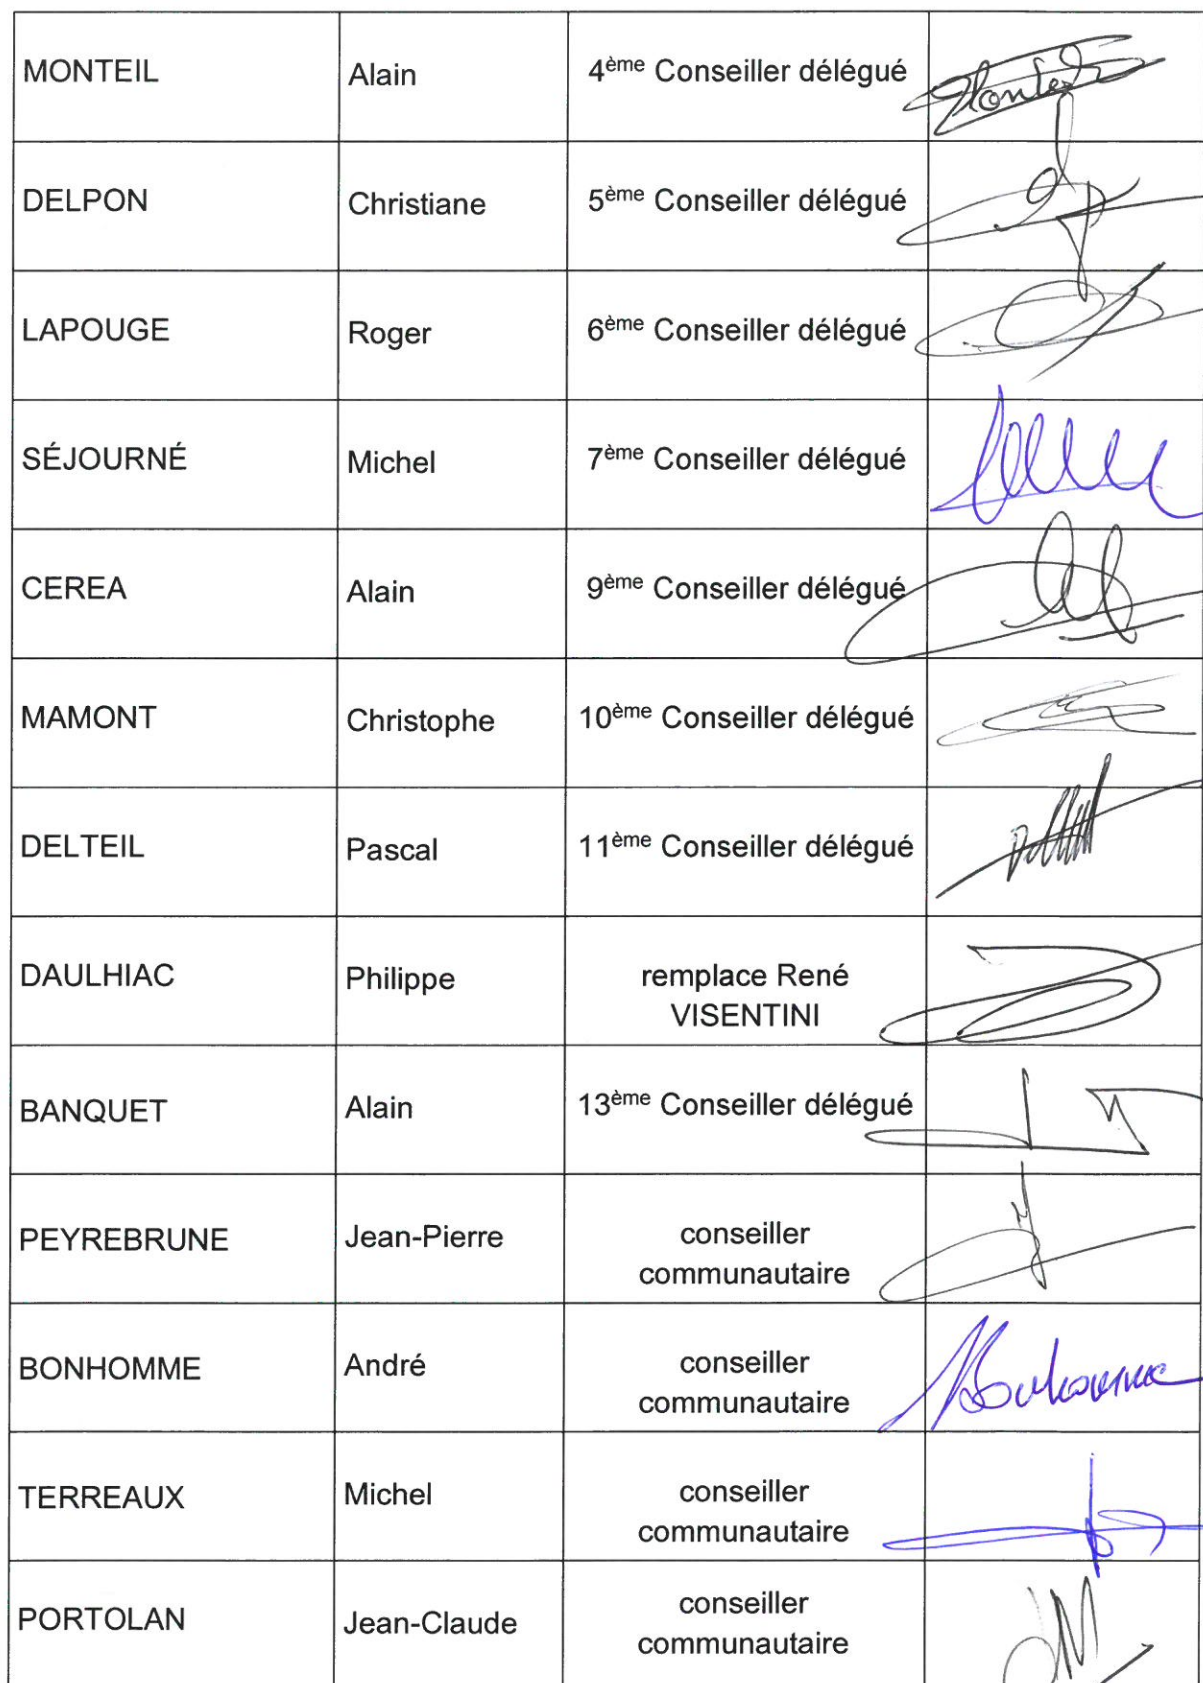 MONTEIL Alain 4ème Conseiller délégué
DELPON Christiane 5ème Conseiller délégué
LAPOUGE Roger 6ème Conseiller délégué
SÉJOURNÉ Michel 7ème Conseiller délégué
CEREA Alain 9ème Conseiller délégué
MAMONT Christophe 10ème Conseiller délégué
DELTEIL Pascal 11ème Conseiller délégué
DAULHIAC Philippe remplace René
VISENTINI
BANQUET Alain 13ème Conseiller délégué
PEYREBRUNE Jean-Pierre conseiller
communautaire
BONHOMME André conseiller
communautaire
TERREAUX Michel conseiller
communautaire
PORTOLAN Jean-Claude conseiller
communautaire